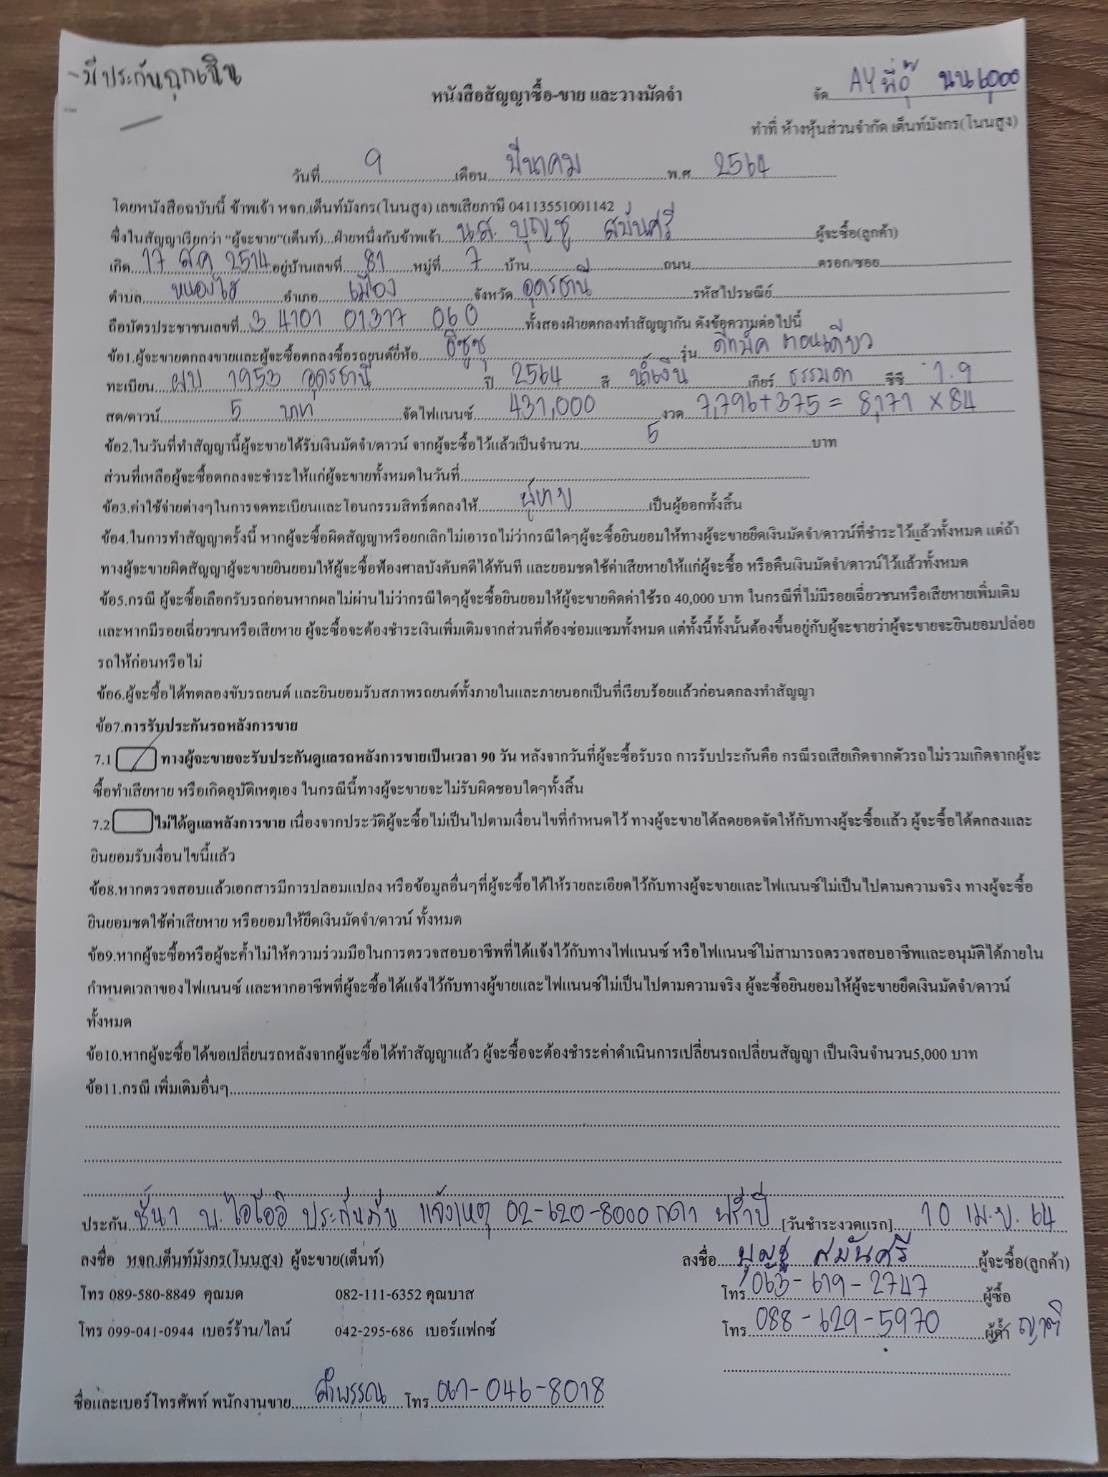 - มีประกันฉุกเฉิน
จัด AY พี่อุ๊ นน 6,000
หนังสือสัญญาซื้อ-ขาย และวางมัดจำ
ทำที่ ห้างหุ้นส่วนจำกัด เต็นท์มังกร(โนนสูง)
วันที่ 9 เดือน มีนาคม พ.ศ. 2564
โดยหนังสือฉบับนี้ ข้าพเจ้า หจก.เต็นท์มังกร(โนนสูง) เลขเสียภาษี 04113551001142
ซึ่งในสัญญาเรียกว่า "ผู้จะขาย"(เต็นท์)...ฝ่ายหนึ่งกับข้าพเจ้า นส. บุญชู สมันศรี ผู้จะซื้อ(ลูกค้า)
เกิด 17 สค 2514 อยู่บ้านเลขที่ 81 หมู่ที่ 7 บ้าน ถนน ตรอก/ซอย
ตำบล หนองไฮ อำเภอ เมือง จังหวัด อุดรธานี รหัสไปรษณีย์
ถือบัตรประชาชนเลขที่ 3 4101 01317 060 ทั้งสองฝ่ายตกลงทำสัญญากัน ดังข้อความต่อไปนี้
ข้อ1.ผู้จะขายตกลงขายและผู้จะซื้อตกลงซื้อรถยนต์ยี่ห้อ อีซูซุ รุ่น ดีแม็ค ตอนเดียว
ทะเบียน ผบ 1953 อุดรธานี ปี 2564 สี น้ำเงิน เกียร์ ธรรมดา ซีซี 1.9
สด/ดาวน์ 5 บาท จัดไฟแนนซ์ 431,000 งวด 7,796+375 = 8,171 x 84
ข้อ2.ในวันที่ทำสัญญานี้ผู้จะขายได้รับเงินมัดจำ/ดาวน์ จากผู้จะซื้อไว้แล้วเป็นจำนวน 5 บาท
ส่วนที่เหลือผู้จะซื้อตกลงจะชำระให้แก่ผู้จะขายทั้งหมดในวันที่
ข้อ3.ค่าใช้จ่ายต่างๆในการจดทะเบียนและโอนกรรมสิทธิ์ตกลงให้ ผู้ขาย เป็นผู้ออกทั้งสิ้น
ข้อ4.ในการทำสัญญาครั้งนี้ หากผู้จะซื้อผิดสัญญาหรือยกเลิกไม่เอารถไม่ว่ากรณีใดๆผู้จะซื้อยินยอมให้ทางผู้จะขายยึดเงินมัดจำ/ดาวน์ที่ชำระไว้แล้วทั้งหมด แต่ถ้า
ทางผู้จะขายผิดสัญญาผู้จะขายยินยอมให้ผู้จะซื้อฟ้องศาลบังคับคดีได้ทันที และยอมชดใช้ค่าเสียหายให้แก่ผู้จะซื้อ หรือคืนเงินมัดจำ/ดาวน์ไว้แล้วทั้งหมด
ข้อ5.กรณี ผู้จะซื้อเลือกรับรถก่อนหากผลไม่ผ่านไม่ว่ากรณีใดๆผู้จะซื้อยินยอมให้ผู้จะขายคิดค่าใช้รถ 40,000 บาท ในกรณีที่ไม่มีรอยเฉี่ยวชนหรือเสียหายเพิ่มเติม
และหากมีรอยเฉี่ยวชนหรือเสียหาย ผู้จะซื้อจะต้องชำระเงินเพิ่มเติมจากส่วนที่ต้องซ่อมแซมทั้งหมด แต่ทั้งนี้ทั้งนั้นต้องขึ้นอยู่กับผู้จะขายว่าผู้จะขายจะยินยอมปล่อย
รถให้ก่อนหรือไม่
ข้อ6.ผู้จะซื้อได้ทดลองขับรถยนต์ และยินยอมรับสภาพรถยนต์ทั้งภายในและภายนอกเป็นที่เรียบร้อยแล้วก่อนตกลงทำสัญญา
ข้อ7.การรับประกันรถหลังการขาย
7.1 ทางผู้จะขายจะรับประกันดูแลรถหลังการขายเป็นเวลา 90 วัน หลังจากวันที่ผู้จะซื้อรับรถ การรับประกันคือ กรณีรถเสียเกิดจากตัวรถไม่รวมเกิดจากผู้จะ
ซื้อทำเสียหาย หรือเกิดอุบัติเหตุเอง ในกรณีนี้ทางผู้จะขายจะไม่รับผิดชอบใดๆทั้งสิ้น
7.2 ไม่ได้ดูแลหลังการขาย เนื่องจากประวัติผู้จะซื้อไม่เป็นไปตามเงื่อนไขที่กำหนดไว้ ทางผู้จะขายได้ลดยอดจัดให้กับทางผู้จะซื้อแล้ว ผู้จะซื้อได้ตกลงและ
ยินยอมรับเงื่อนไขนี้แล้ว
ข้อ8.หากตรวจสอบแล้วเอกสารมีการปลอมแปลง หรือข้อมูลอื่นๆที่ผู้จะซื้อได้ให้รายละเอียดไว้กับทางผู้จะขายและไฟแนนซ์ไม่เป็นไปตามความจริง ทางผู้จะซื้อ
ยินยอมชดใช้ค่าเสียหาย หรือยอมให้ยึดเงินมัดจำ/ดาวน์ ทั้งหมด
ข้อ9.หากผู้จะซื้อหรือผู้จะค้ำไม่ให้ความร่วมมือในการตรวจสอบอาชีพที่ได้แจ้งไว้กับทางไฟแนนซ์ หรือไฟแนนซ์ไม่สามารถตรวจสอบอาชีพและอนุมัติได้ภายใน
กำหนดเวลาของไฟแนนซ์ และหากอาชีพที่ผู้จะซื้อได้แจ้งไว้กับทางผู้ขายและไฟแนนซ์ไม่เป็นไปตามความจริง ผู้จะซื้อยินยอมให้ผู้จะขายยึดเงินมัดจำ/ดาวน์
ทั้งหมด
ข้อ10.หากผู้จะซื้อได้ขอเปลี่ยนรถหลังจากผู้จะซื้อได้ทำสัญญาแล้ว ผู้จะซื้อจะต้องชำระค่าดำเนินการเปลี่ยนรถเปลี่ยนสัญญา เป็นเงินจำนวน5,000 บาท
ข้อ11.กรณี เพิ่มเติมอื่นๆ
ประกัน ชั้น1 บ. ไอโออิ ประกันภัย แจ้งเหตุ 02-620-8000 กด1 ฟรี1ปี [วันชำระงวดแรก] 10 เม.ย. 64
ลงชื่อ หจก.เต็นท์มังกร(โนนสูง) ผู้จะขาย(เต็นท์) ลงชื่อ บุญชู สมันศรี ผู้จะซื้อ(ลูกค้า)
โทร 089-580-8849 คุณมด 082-111-6352 คุณบาส โทร 063-619-2747 ผู้ซื้อ
โทร 099-041-0944 เบอร์ร้าน/ไลน์ 042-295-686 เบอร์แฟกซ์ โทร 088-629-5970 ผู้ค้ำ ญาติ
ชื่อและเบอร์โทรศัพท์ พนักงานขาย ลำพรรณ โทร 061-046-8018